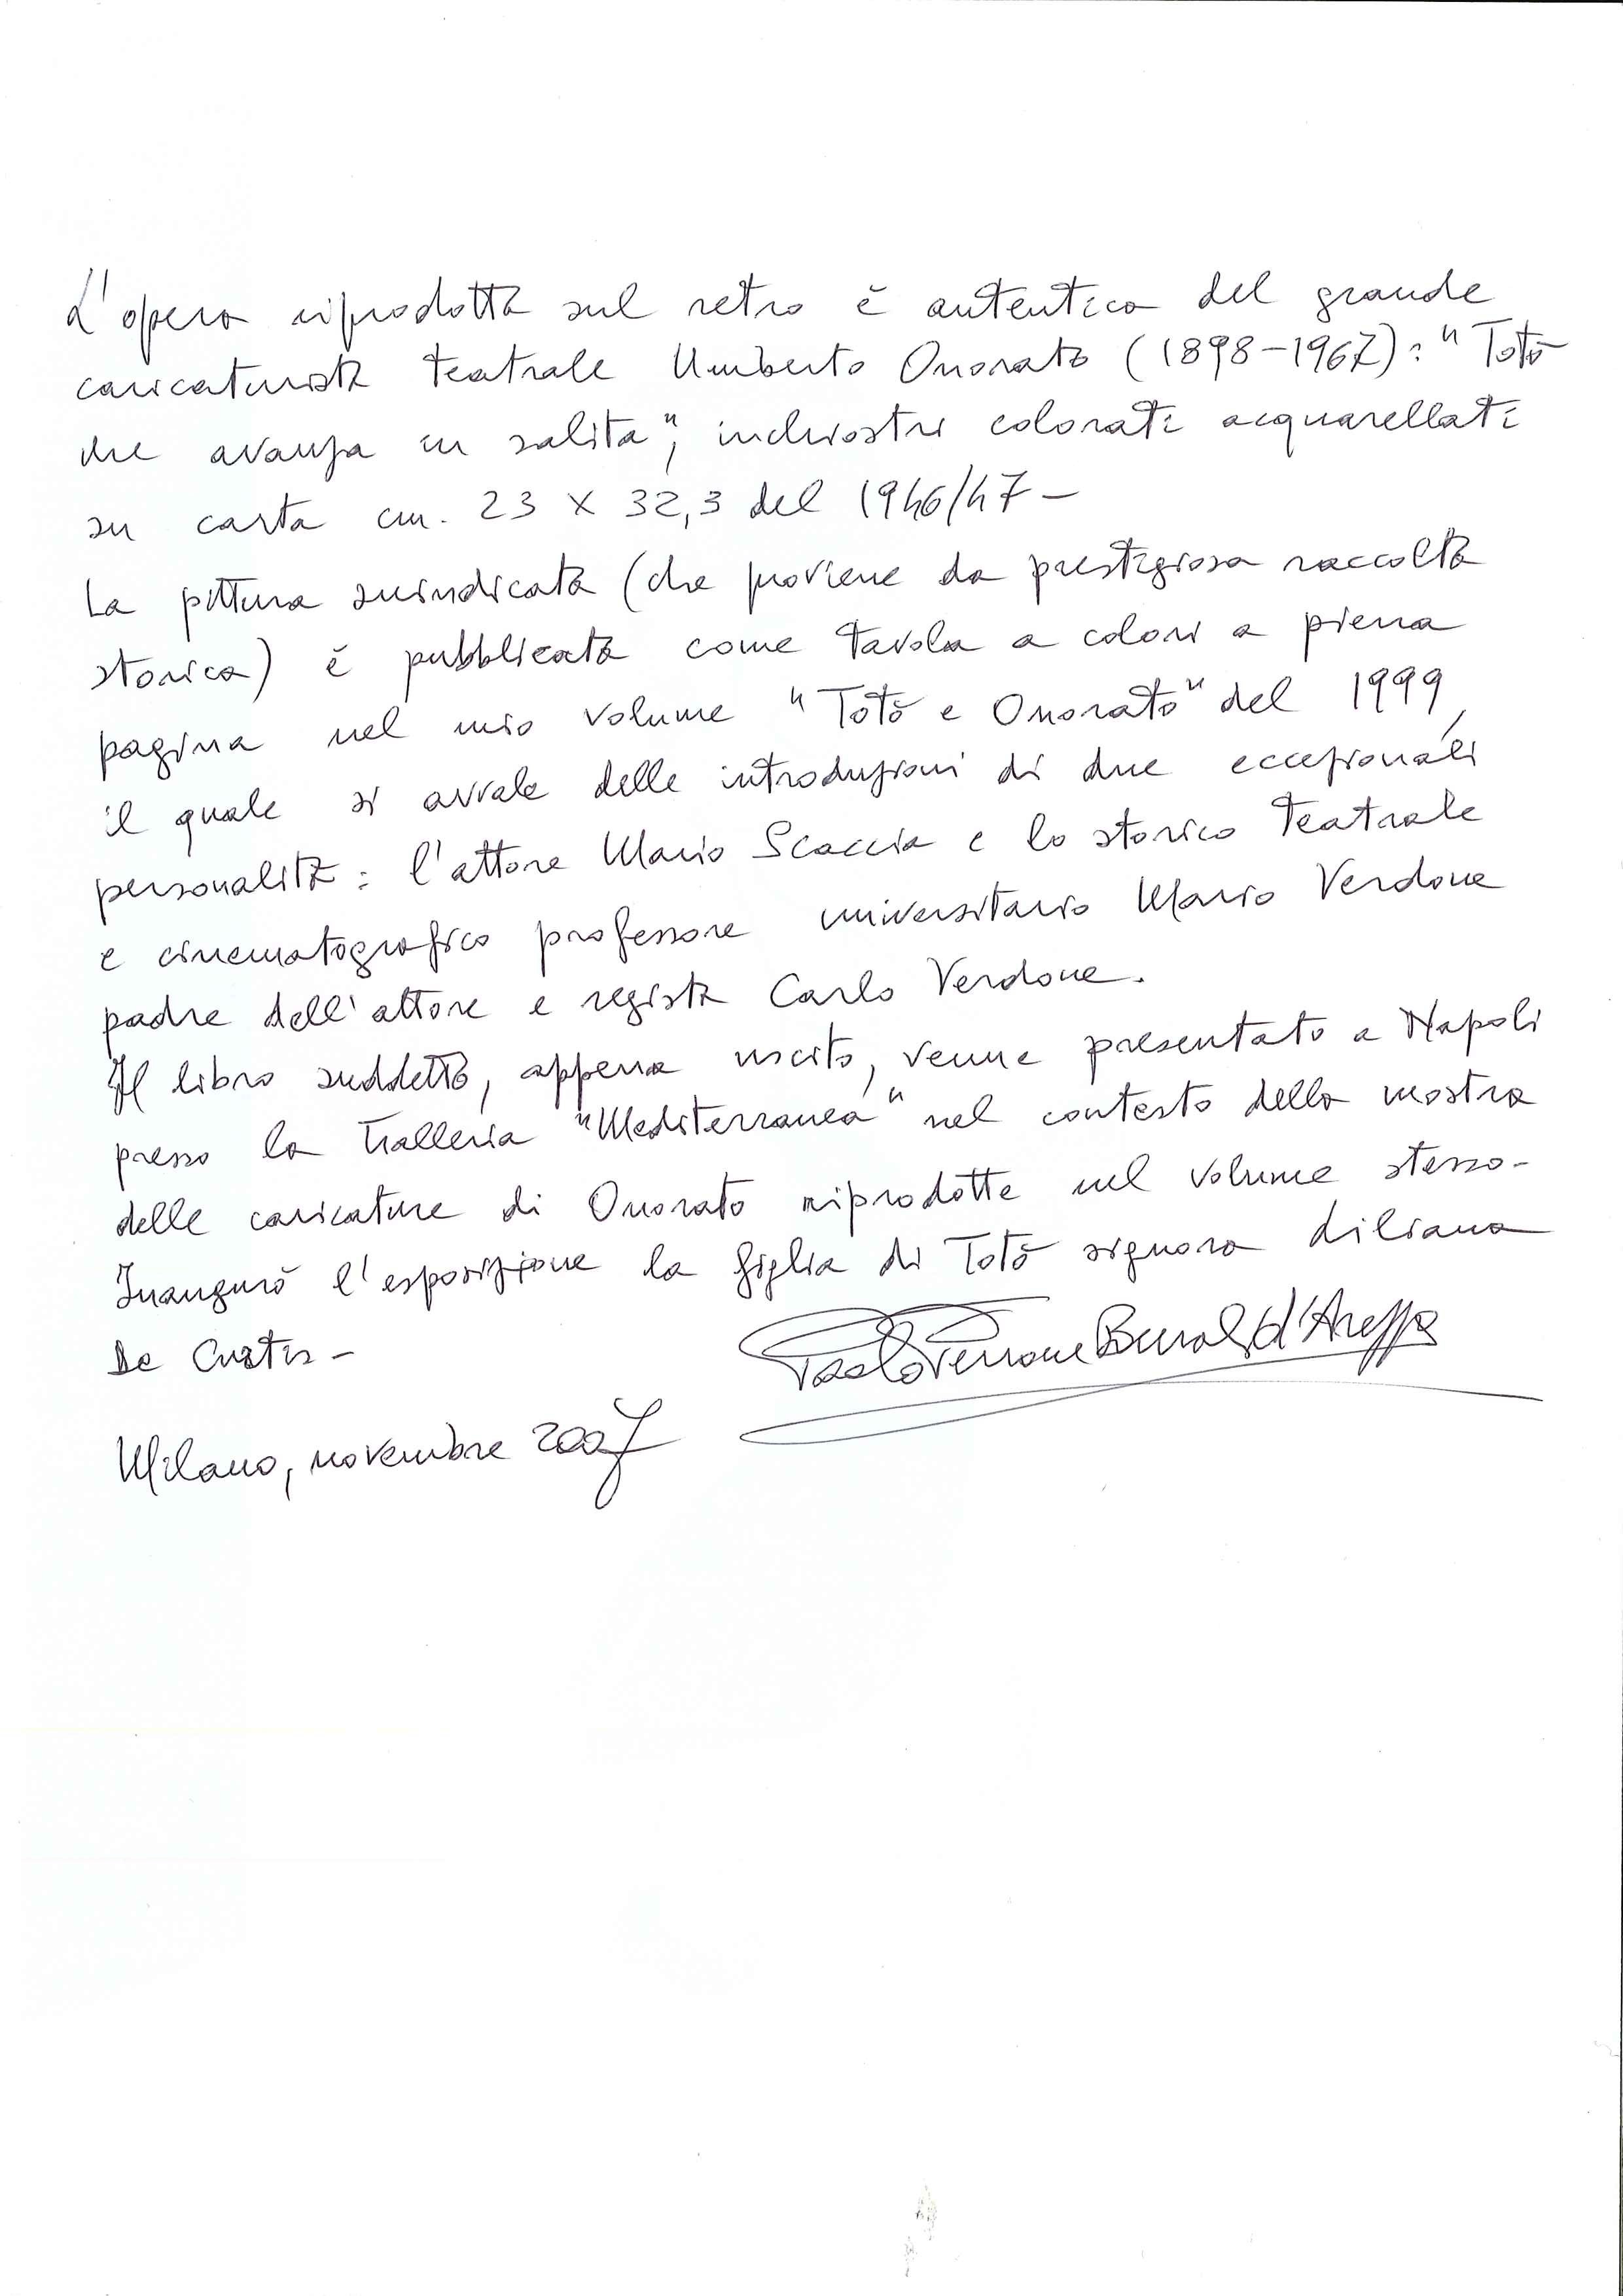 L'opera riprodotta sul retro è autentica del grande
caricaturista teatrale Umberto Onorato (1898-1967): "Totò
che avanza in salita", inchiostri colorati acquarellati
su carta cm. 23 x 32,3 del 1946/47 -
La pittura suindicata (che proviene da prestigiosa raccolta
storica) è pubblicata come tavola a colori a piena
pagina nel mio volume "Totò e Onorato" del 1999,
il quale si avvale delle introduzioni di due eccezionali
personalità: l'attore Mario Scaccia e lo storico teatrale
e cinematografico professore universitario Mario Verdone
padre dell'attore e regista Carlo Verdone.
Il libro suddetto, appena uscito, venne presentato a Napoli
presso la Galleria "Mediterranea" nel contesto della mostra
delle caricature di Onorato riprodotte nel volume stesso -
Inaugurò l'esposizione la figlia di Totò signora Liliana
De Curtis -
Paolo Perrone Burali d'Arezzo
Milano, novembre 2007